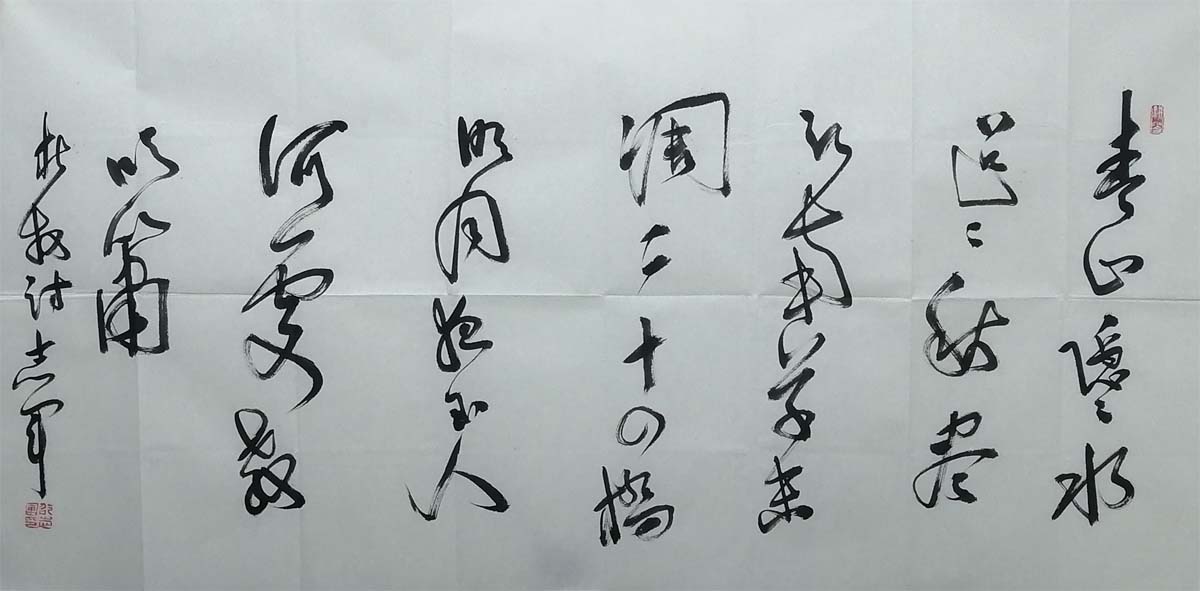 青山隱〻水
迢〻秋盡
江南草未
凋二十四橋
明月夜玉人
何處教
吹簫
杜牧詩志军